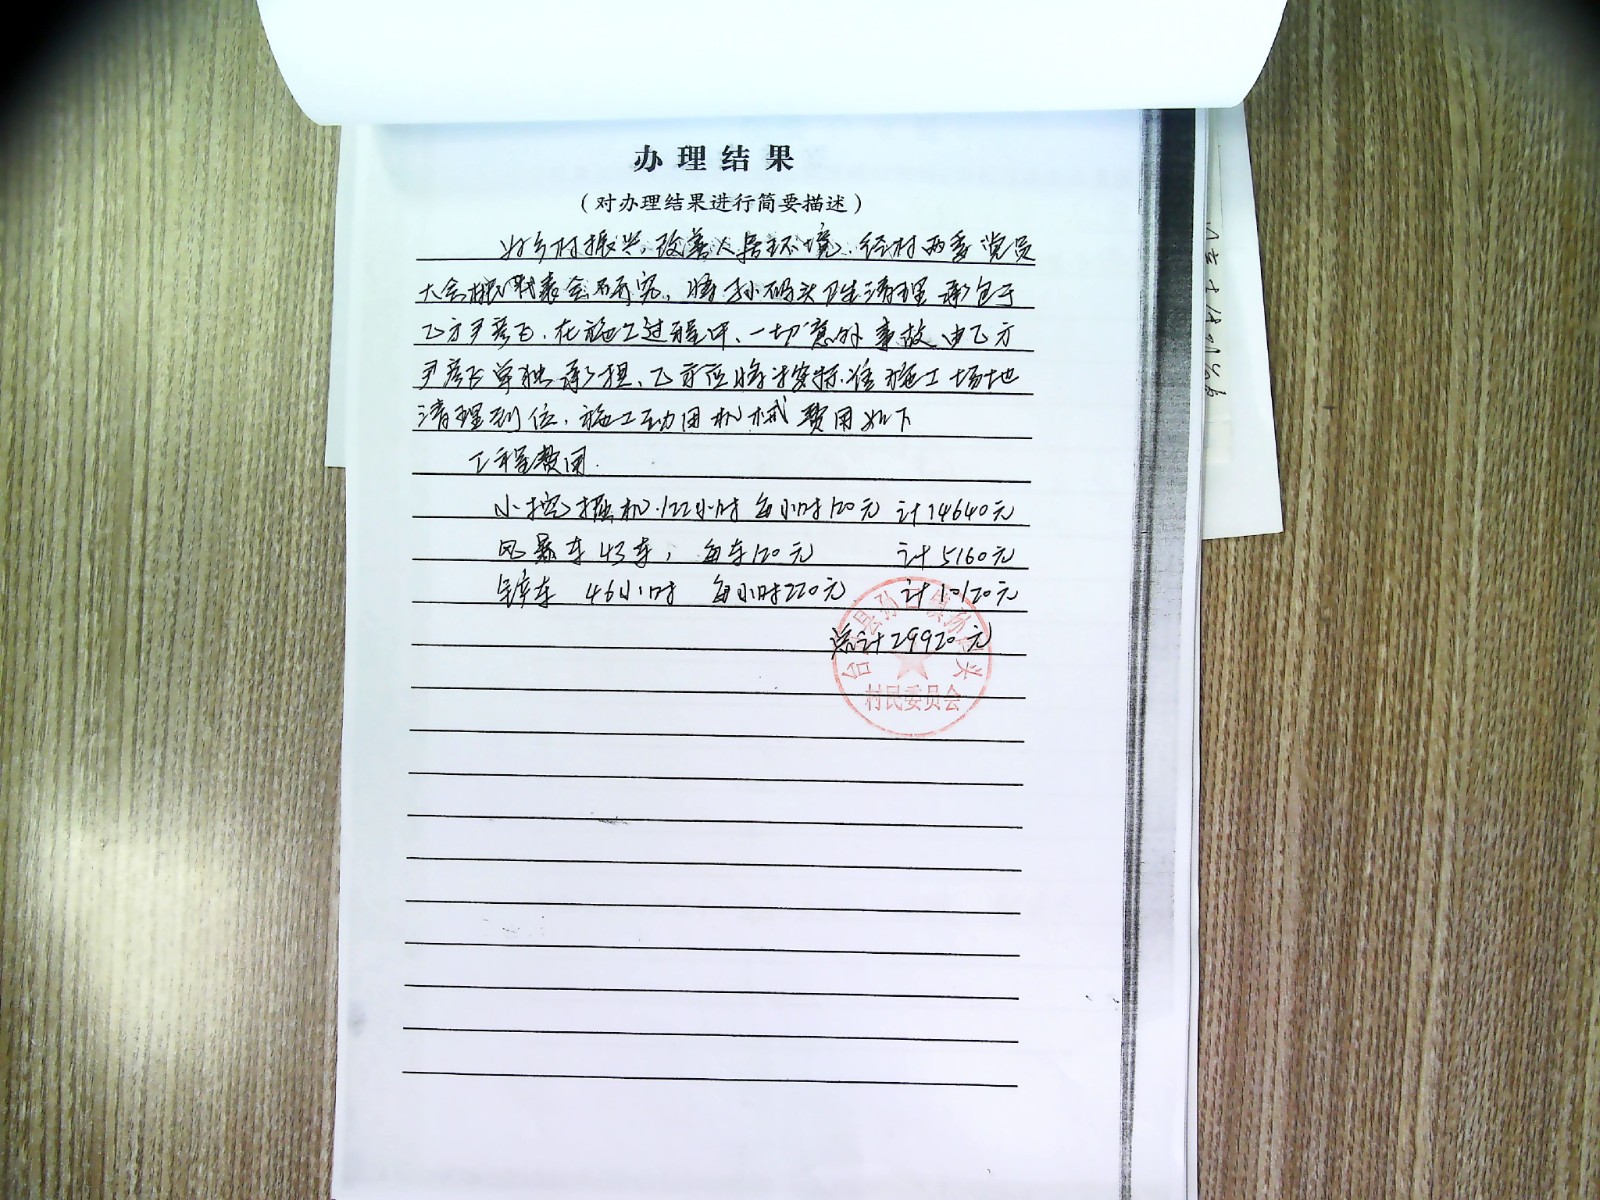 办理结果
（对办理结果进行简要描述）
为乡村振兴，改善人居环境，经村两委党员
大会村民代表会研究，将孙码头卫生清理承包于
乙方尹彦飞，在施工过程中，一切意外事故由乙方
尹彦飞单独承担，乙方应将按实标准施工场地
清理到位，施工动用机械费用如下
工程费用
小挖掘机122小时 每小时120元 计14640元
风暴车43车，每车120元 计5160元
铲车 46小时 每小时220元 计10120元
总计29920元
村民委员会